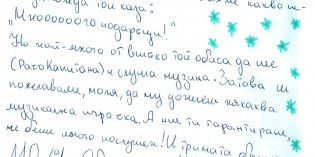 той каза:
"Мнооооого подаръци!"
Но най-много от всичко той обича да яде
(РатоКапитана) и слуша музика. Затова ти
пожелавам, моля, да му донесеш някаква
музикална играчка. А ние ти гарантираме,
че беше много послушен! И тримата